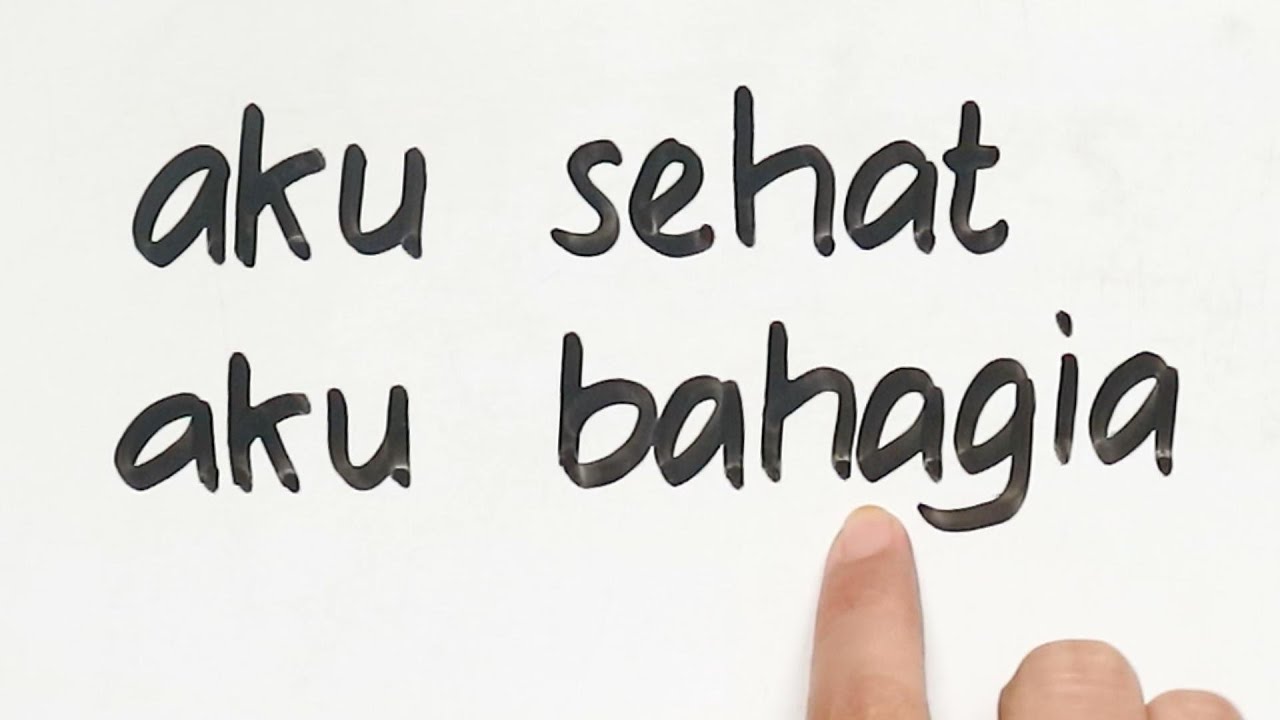 aku sehat
aku bahagia